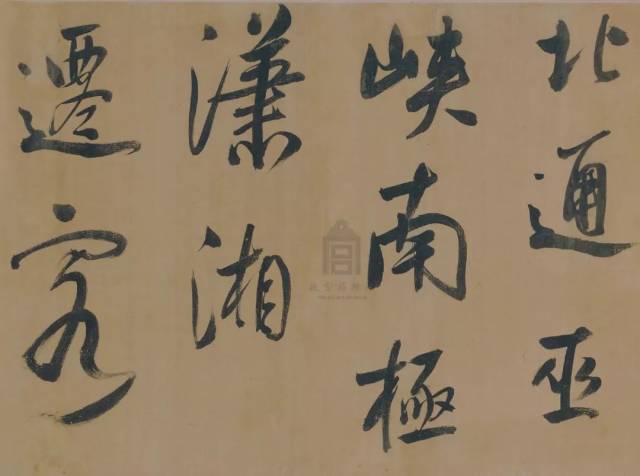 北通巫
峡南極
瀟湘
遷客